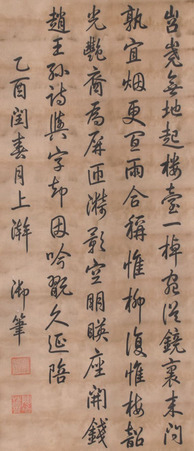 岧嶤無地起樓臺一棹宛從鏡裏來問
孰宜烟更宜雨合稱惟柳復惟梅韶
光艷裔為屏匝漪影空明映座開錢
趙王孫詩與字却因吟翫久延陪
乙酉閏春月上澣 御筆